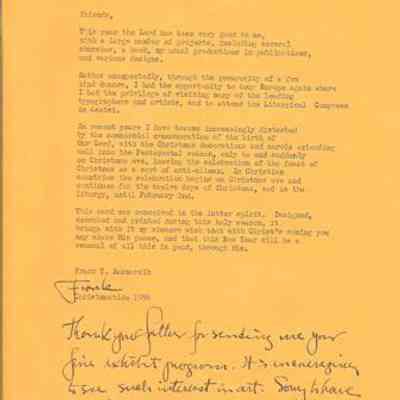 Friends,
This year the Lord has been very good to me,
with a large number of projects, including several
churches, a book, my usual productions in publications,
and various designs.
Rather unexpectedly, through the generosity of a few
kind donors, I had the opportunity to tour Europe again where
I had the privilege of visiting many of the leading
typographers and artists, and to attend the Liturgical Congress
in Assisi.
In recent years I have become increasingly distracted
by the commercial commemoration of the birth of
Our Lord, with the Christmas decorations and carols extending
well into the Pentecostal season, only to end suddenly
on Christmas eve, leaving the celebration of the feast of
Christmas as a sort of anti-climax. In Christian
countries the celebration begins on Christmas eve and
continues for the twelve days of Christmas, and in the
liturgy, until February 2nd.
This card was conceived in the latter spirit. Designed,
executed and printed during this holy season, it
brings with it my sincere wish that with Christ's coming you
may share His peace, and that this New Year will be a
renewal of all this in good, through Him.
Frank
Christmastide 1956
Thank you father for sending me your
fine exhibit program. It is encouraging
to see such interest in art. Sorry to have